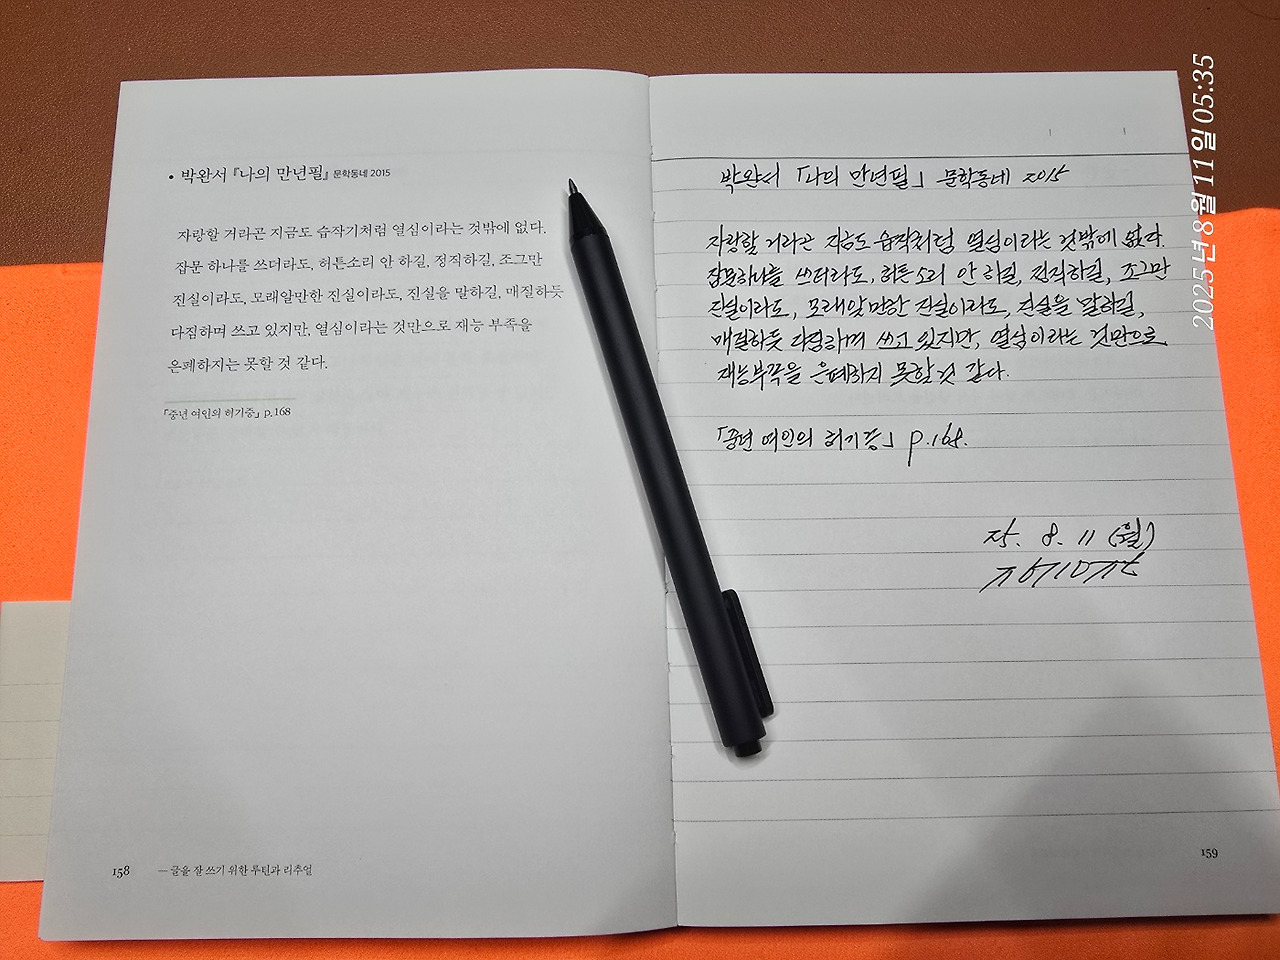 • 박완서 『나의 만년필』 문학동네 2015
자랑할 거라곤 지금도 습작기처럼 열심이라는 것밖에 없다.
잡문 하나를 쓰더라도, 허튼소리 안 하길, 정직하길, 조그만
진실이라도, 모래알만한 진실이라도, 진실을 말하길, 매질하듯
다짐하며 쓰고 있지만, 열심이라는 것만으로 재능 부족을
은폐하지는 못할 것 같다.
「중년 여인의 허기증」 p.168
158 — 글을 잘 쓰기 위한 루틴과 리추얼
박완서 「나의 만년필」 문학동네 2015
자랑할 거라곤 지금도 습작처럼 열심이라는 것밖에 없다.
잡문하나를 쓰더라도, 허튼소리 안 하길, 정직하길, 조그만
진실이라도, 모래알만한 진실이라도, 진실을 말하길,
매질하듯 다짐하며 쓰고 있지만, 열심이라는 것만으로
재능부족을 은폐하지 못할것 같다.
「중년 여인의 허기증」 p.168.
25. 8. 11 (월)
159
2025년 8월 11일 05:35